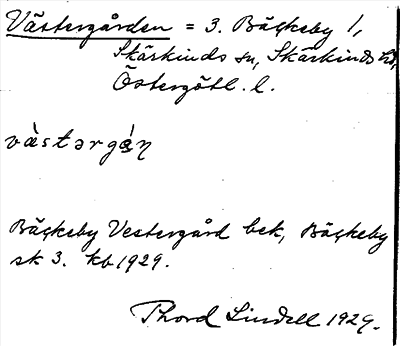 Västergården = 3. Bäckeby 1,
Skärkinds sn, Skärkinds hd,
Östergötl. l.
Bäckeby Vestergård bek, Bäckeby
sk 3. kb 1929.
Thord Lindell 1929.